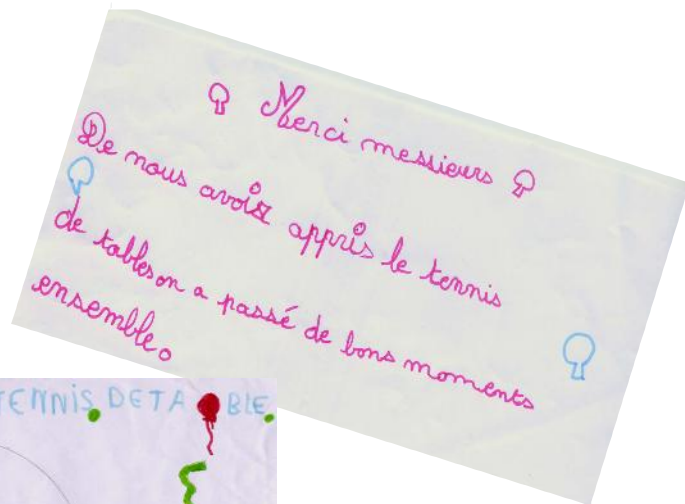 Merci messieurs
De nous avoir appris le tennis
de tables on a passé de bons moments
ensemble.
TENNIS DE TABLE